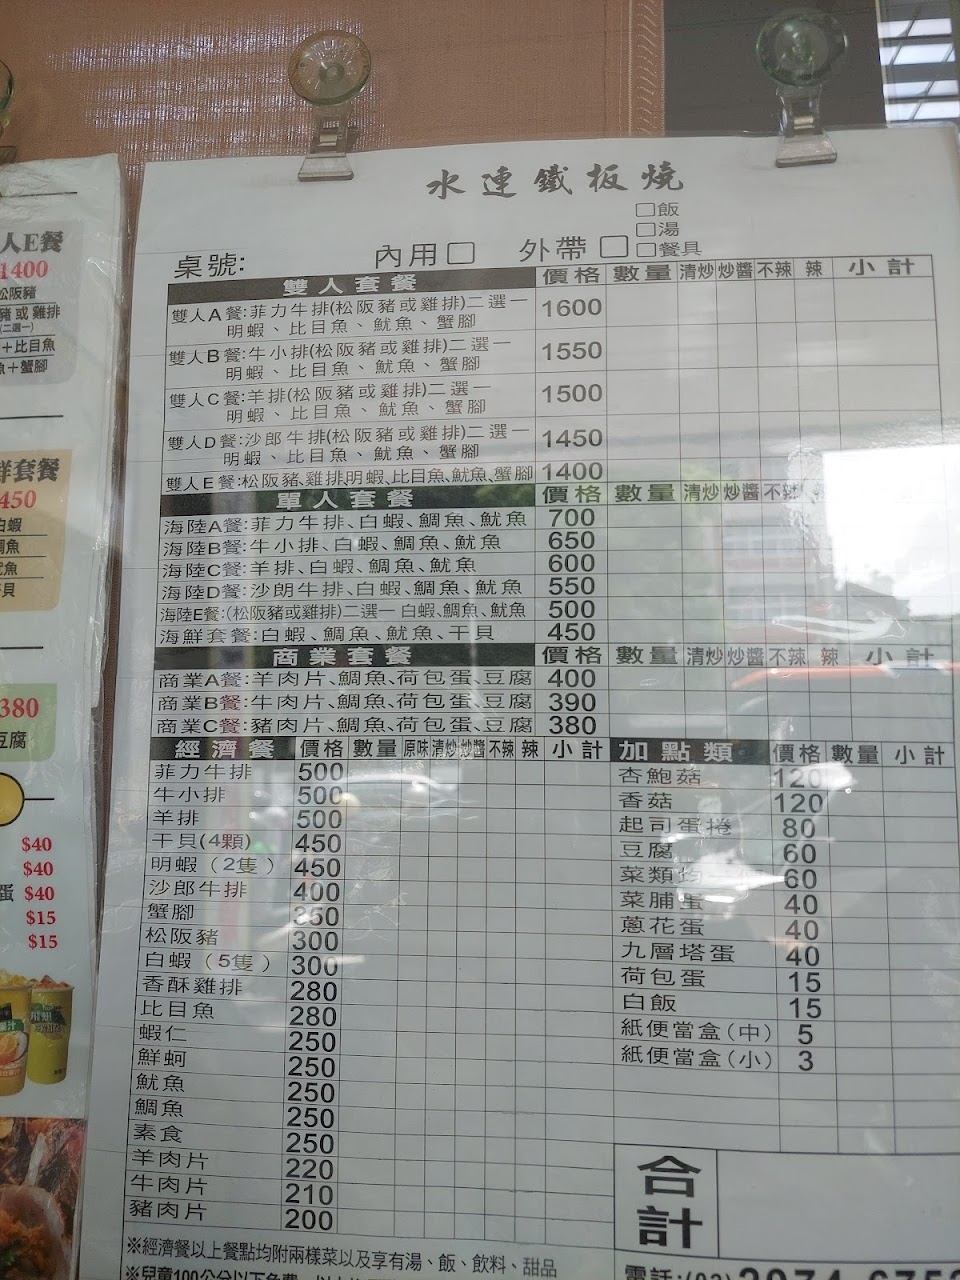 人E餐
1400
松阪豬
豬 或 雞排
(二選一)
+比目魚
魚+蟹腳
鮮套餐
450
白蝦
鯛魚
魷魚
干貝
380
豆腐
$40
$40
蛋 $40
$15
$15
水連鐵板燒
□飯
□湯
桌號: 內用□ 外帶□ □餐具
雙人套餐 價格 數量 清炒 炒醬 不辣 辣 小計
雙人A餐:菲力牛排(松阪豬或雞排)二選一 1600
明蝦、比目魚、魷魚、蟹腳
雙人B餐:牛小排(松阪豬或雞排)二選一 1550
明蝦、比目魚、魷魚、蟹腳
雙人C餐:羊排(松阪豬或雞排)二選一 1500
明蝦、比目魚、魷魚、蟹腳
雙人D餐:沙郎牛排(松阪豬或雞排)二選一 1450
明蝦、比目魚、魷魚、蟹腳
雙人E餐:松阪豬、雞排明蝦、比目魚、魷魚、蟹腳 1400
單人套餐 價格 數量 清炒 炒醬 不辣
海陸A餐:菲力牛排、白蝦、鯛魚、魷魚 700
海陸B餐:牛小排、白蝦、鯛魚、魷魚 650
海陸C餐:羊排、白蝦、鯛魚、魷魚 600
海陸D餐:沙朗牛排、白蝦、鯛魚、魷魚 550
海陸E餐:(松阪豬或雞排)二選一 白蝦、鯛魚、魷魚 500
海鮮套餐:白蝦、鯛魚、魷魚、干貝 450
商業套餐 價格 數量 清炒 炒醬 不辣 辣 小計
商業A餐:羊肉片、鯛魚、荷包蛋、豆腐 400
商業B餐:牛肉片、鯛魚、荷包蛋、豆腐 390
商業C餐:豬肉片、鯛魚、荷包蛋、豆腐 380
經濟餐 價格 數量 原味 清炒 炒醬 不辣 辣 小計
菲力牛排 500
牛小排 500
羊排 500
干貝(4顆) 450
明蝦（2隻） 450
沙郎牛排 400
蟹腳 350
松阪豬 300
白蝦（5隻） 300
香酥雞排 280
比目魚 280
蝦仁 250
鮮蚵 250
魷魚 250
鯛魚 250
素食 250
羊肉片 220
牛肉片 210
豬肉片 200
加點類 價格 數量 小計
杏鮑菇 120
香菇 120
起司蛋捲 80
豆腐 60
菜類 60
菜脯蛋 40
蔥花蛋 40
九層塔蛋 40
荷包蛋 15
白飯 15
紙便當盒(中) 5
紙便當盒(小) 3
合計
※經濟餐以上餐點均附兩樣菜以及享有湯、飯、飲料、甜品
※兒童100公分以下免費
電話:(02)